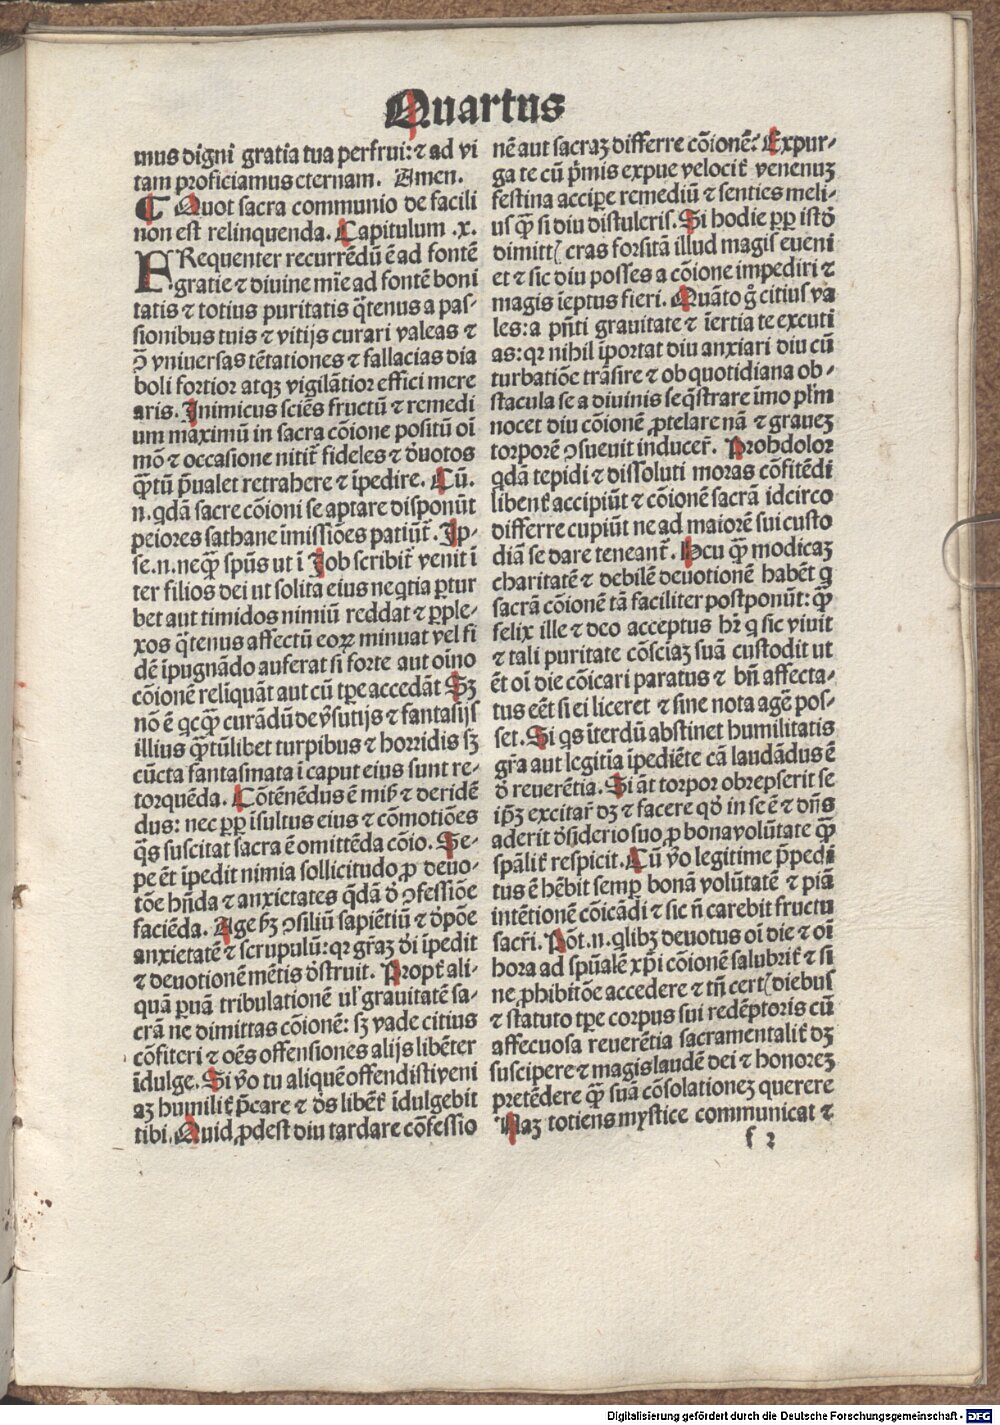 Quartus
mus digni gratia tua perfrui: ⁊ ad vi
tam proficiamus eternam. Amen.
¶ Quot sacra communio de facili
non est relinquenda. Capitulum .x.
FRequenter recurrēdū ē ad fontē
gratie ⁊ diuine mīe ad fontē boni
tatis ⁊ totius puritatis q̄tenus a pas-
sionibus tuis ⁊ vitijs curari valeas ⁊
ↄ̄ vniuersas tētationes ⁊ fallacias dia
boli fortior atqꝫ vigilātior effici mere
aris. Inimicus sciēs fructū ⁊ remedi
um maximū in sacra cōione positū oī
mō ⁊ occasione nitit̄ fideles ⁊ d̄uotos
qꝫ̄tū p̄ualet retrahere ⁊ īpedire. Cū.
n. qdā sacre cōioni se aptare disponūt
peiores sathane īmissiōes patiūt̄. Ip-
se .n. neqꝫ̄ sp̄us ut ī Job scribit̄ venit ī
ter filios dei ut solita eius neq̄tia ꝑtur
bet aut timidos nimiū reddat ⁊ ꝑple-
xos q̄tenus affectū eoꝝ minuat vel fi
dē īpugnādo auferat si forte aut oīno
cōionē relīquāt aut cū tꝑe accedāt Sꝫ
nō ē qcqꝫ̄ curādū de v̄sutijs ⁊ fantasijs
illius qꝫ̄tūlibet turpibus ⁊ horridis sꝫ
cūcta fantasmata ī caput eius sunt re-
torquēda. Cōtēnēdus ē mib̄ ⁊ deridē
dus: nec ꝓp̄ īsultus eius ⁊ cōmotiōes
q̄s suscitat sacra ē omittēda cōio. Se-
pe ēt īpedit nimia sollicitudo ꝓ deuo-
tōe hn̄da ⁊ anxietates q̄dā d̄ ↄfessiōe
faciēda. Age ẜꝫ ↄsiliū sapiētiū ⁊ d̄pōe
anxietatē ⁊ scrupulū: qꝛ gr̄aꝫ d̄i īpedit
⁊ deuotionē mētis d̄struit. Propt̄ ali-
quā ꝑuā tribulationē ul' grauitatē sa-
crā ne dimittas cōionē: sꝫ vade citius
cōfiteri ⁊ oēs offensiones alijs libēter
īdulge. Si v̄o tu aliquē offendisti veni
aꝫ humilit̄ p̄care ⁊ d̄s libēt̄ īdulgebit
tibi. Quid ꝓdest diu tardare cōfessio
nē aut sacraꝫ differre cōionē? Expur-
ga te cū p̄mis expue velocit̄ venenuꝫ
festina accipe remediū ⁊ senties meli-
us qꝫ̄ si diu distuleris. Si hodie ꝓp̄ istō
dimittꝭ cras forsitā illud magis eueni
et ⁊ sic diu posses a cōione impediri ⁊
magis īeptus fieri. Quāto g̊ citius va
les: a pn̄ti grauitate ⁊ īertia te excuti
as: qꝛ nihil īportat diu anxiari diu cū
turbatiōe trāsire ⁊ ob quotidiana ob-
stacula se a diuinis seq̄strare īmo plīm
nocet diu cōionē ꝓtelare nā ⁊ graueꝫ
torporē ↄsueuit inducer̄. Prohdolor
qdā tepidi ⁊ dissoluti moras cōfitēdi
libent̄ accipiūt ⁊ cōionē sacrā idcirco
differre cupiūt ne ad maiorē sui custo
diā se dare teneant̄. Heu qꝫ̄ modicaꝫ
charitatē ⁊ debilē deuotionē habēt q
sacrā cōionē tā faciliter postponūt: qꝫ̄
felix ille ⁊ deo acceptus hr̄ q sic viuit
⁊ tali puritate cōsciaꝫ suā custodit ut
ēt oī die cōicari paratus ⁊ bn̄ affecta-
tus eēt si ei liceret ⁊ sine nota agē pos-
set. Si qs īterdū abstinet humilitatis
gr̄a aut legitīa īpediēte cā laudādus ē
d̄ reuerētia. Si āt torpor obrepserit se
ip̄ꝫ excitar̄ dꝫ ⁊ facere qd̄ in se ē ⁊ dn̄s
aderit d̄siderio suo ꝓ bona volūtate qꝫ̄
sp̄alit̄ respicit. Cū v̄o legitime p̄pedi
tus ē hēbit semꝑ bonā volūtatē ⁊ piā
intētionē cōicādi ⁊ sic n̄ carebit fructu
sacr̄i. Pōt .n. qlibꝫ deuotus oī die ⁊ oī
hora ad sp̄ualē xp̄i cōionē salubrit̄ ⁊ si
ne ꝓhibitōe accedere ⁊ tn̄ certꝭ diebus
⁊ statuto tꝑe corpus sui redēptoris cū
affecuosa reuerētia sacramentalit̄ dꝫ
suscipere ⁊ magis laudē dei ⁊ honoreꝫ
pretēdere qꝫ̄ suā cōsolationeꝫ querere
Naꝫ totiens mystice communicat ⁊
f 2
Digitalisierung gefördert durch die Deutsche Forschungsgemeinschaft - DFG